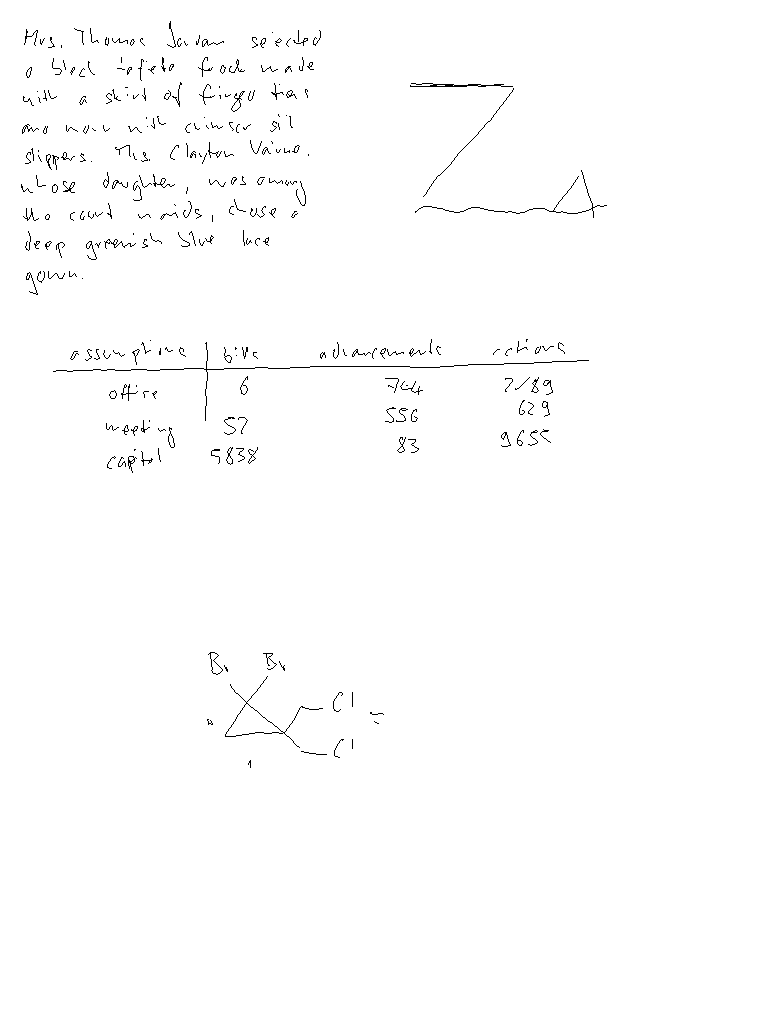 Mrs. Thomas Jordan selected
a black taffeta frock made
with a skirt of finger tiers
and worn with crimson silk
slippers. Mrs. Clayton
whose daughter, was among
the court maids, chose a
deep greenish blue lace
gown.
assumptions bills advancements actions
office 6 744 7/89
meeting 57 556 629
capital 9838 83 9655
Br Br
Cl
Cl